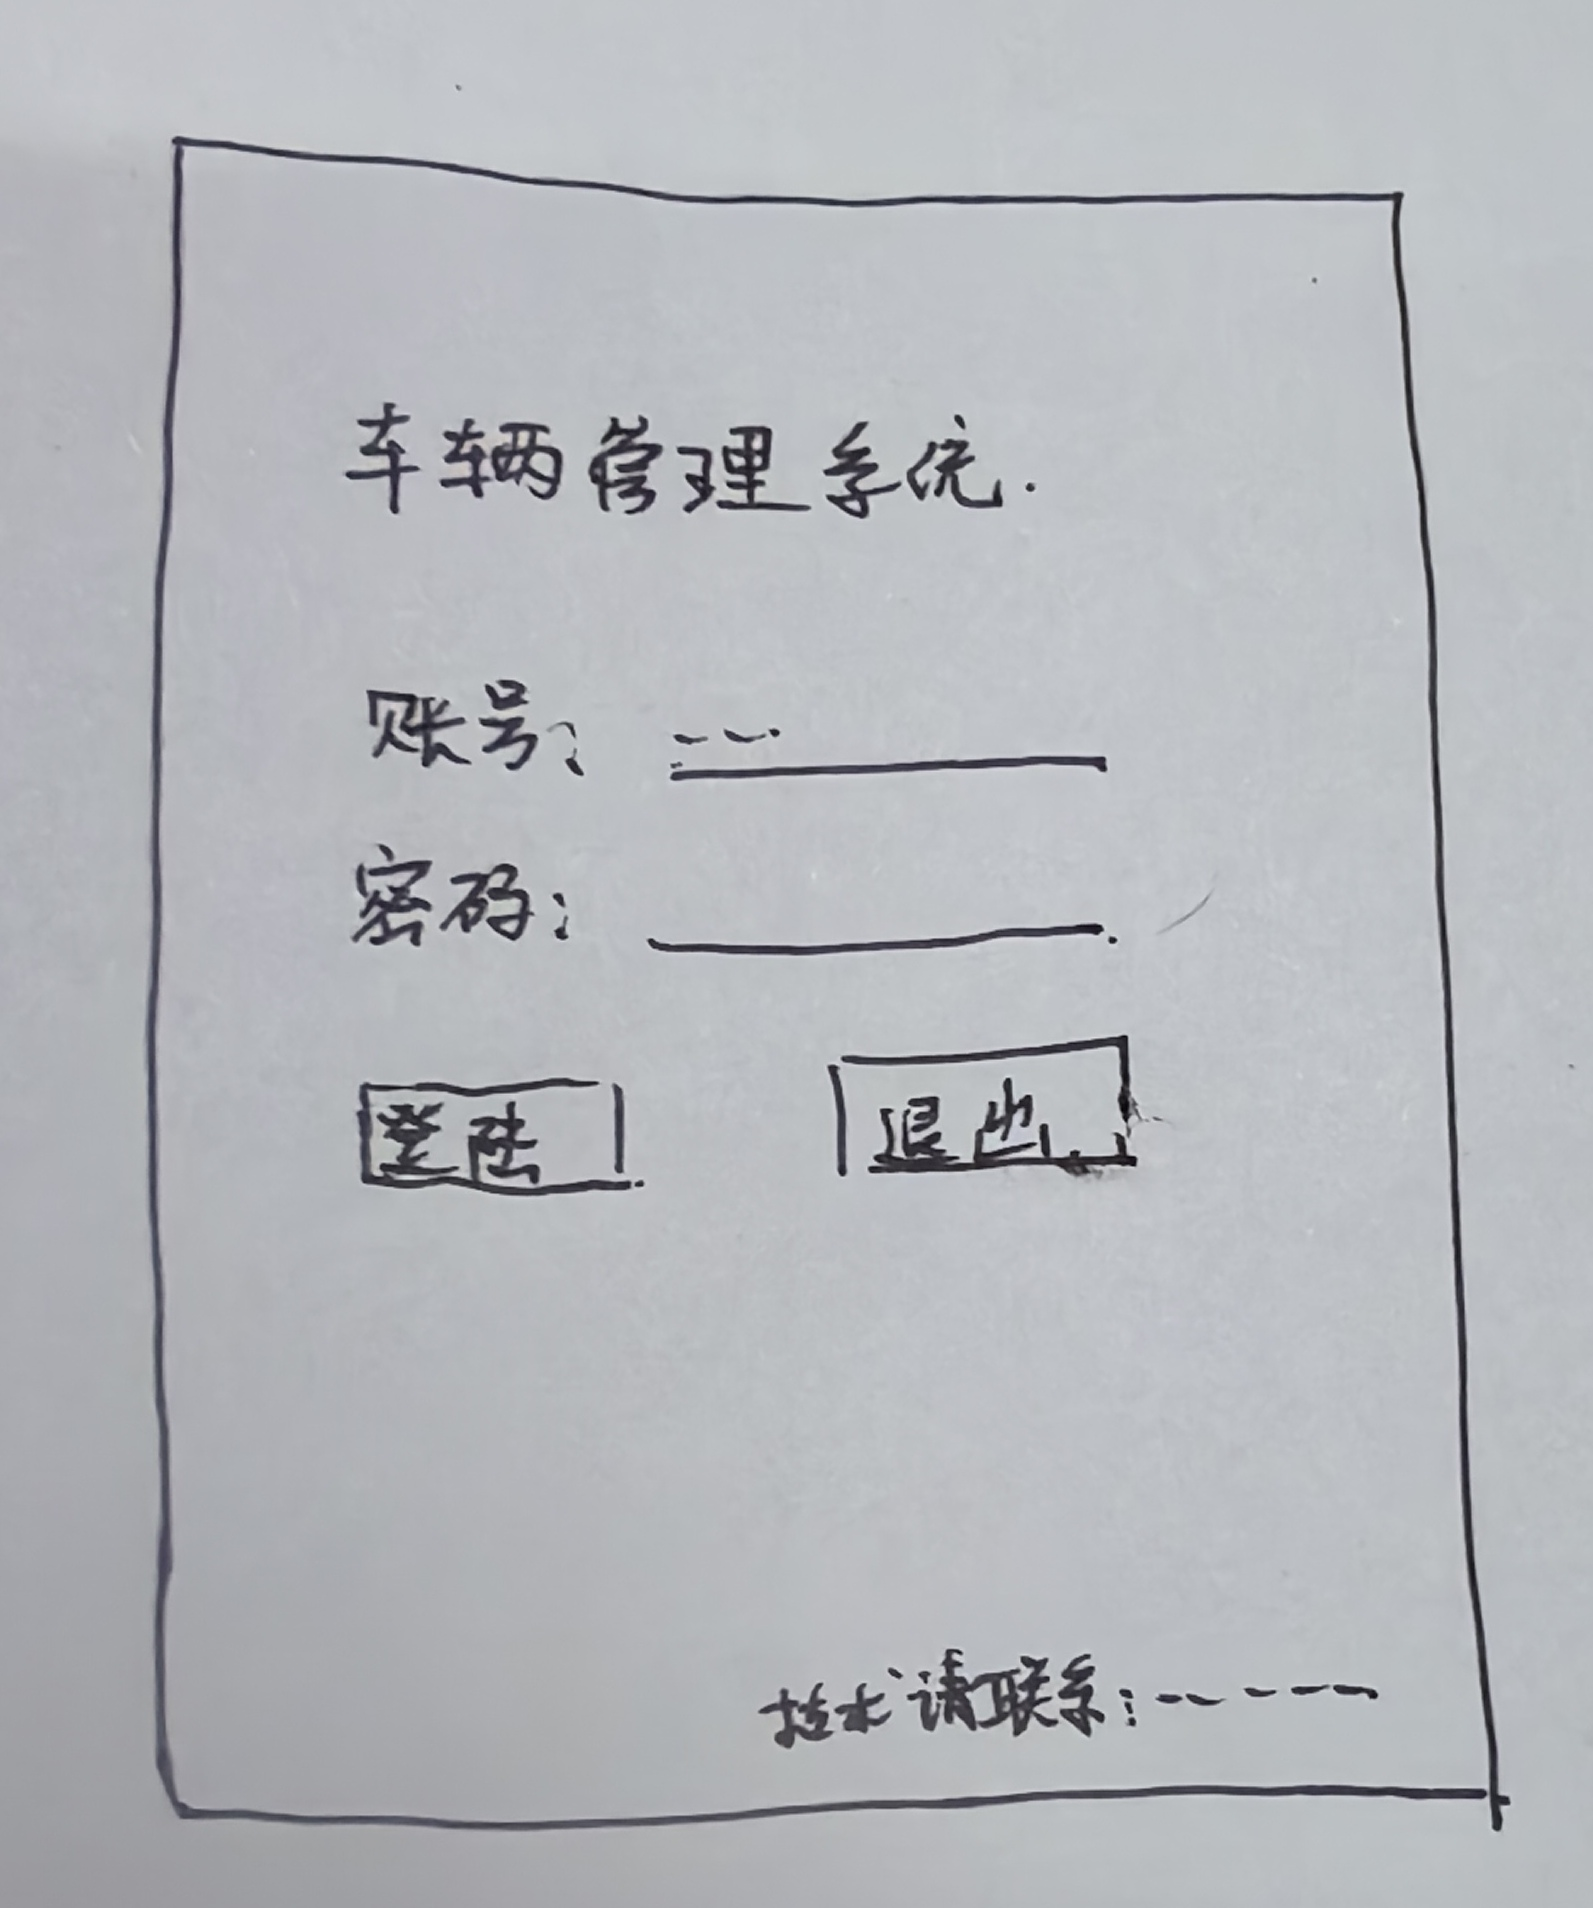 车辆管理系统.
账号: ---
密码:
登陆
退出
技术请联系: -----